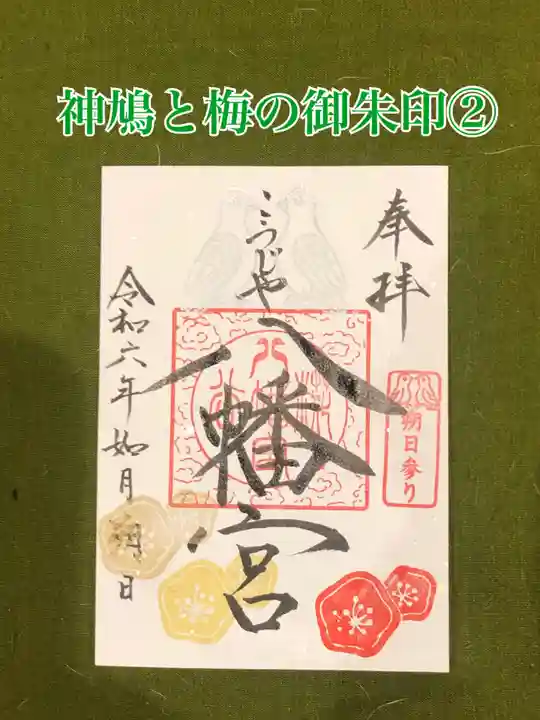 神鳩と梅の御朱印②
奉拝
こうじや
八幡宮
朔日参り
令和六年如月朔日